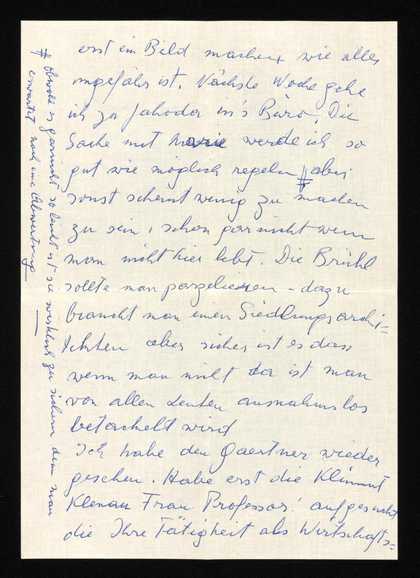 erst ein Bild machen, wie alles
ungefähr ist. Nächste Woche gehe
ich zu Jahoder in's Büro. Die
Sache mit Marie werde ich so
gut wie möglich regeln # aber
sonst scheint wenig zu machen
zu sein, schon gar nicht wenn
man nicht hier lebt. Die Brühl
sollte man parzelieren – dazu
braucht man einen Siedlungsardi=
tekten aber sicher ist es dass
wenn man nicht da ist man
von allen Leuten ausnahmslos
betachelt wird
Ich habe den Gaertner wieder
gesehen. Habe erst die Klimmt
Klenau Frau Professor! aufgesucht
die Ihre Tätigkeit als Wirtschafts=
# obwohl es garnicht so leicht ist sie wirklich zu sichern denn man
erwartet noch eine Abwertung